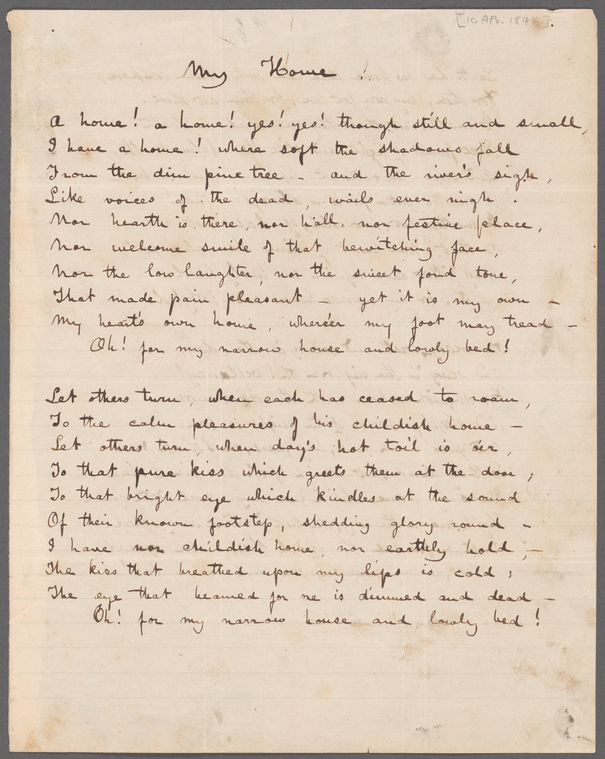 [10 Apr. 184
My Home !
A home! a home! yes! yes! though still and small,
I have a home! where soft the shadows fall
From the dim pine tree - and the river's sigh,
Like voices of the dead, wails ever nigh.
Nor hearth is there, nor hall, nor festive place,
Nor welcome smile of that bewitching face,
Nor the low laughter, nor the sweet fond tone,
That made pain pleasant - yet it is my own -
My heart's own home, where'er my foot may tread -
Oh! for my narrow house and lowly bed!
Let others turn, when each has ceased to roam,
To the calm pleasures of his childish home -
Let others turn, when day's hot toil is o'er,
To that pure kiss which greets them at the door;
To that bright eye which kindles at the sound
Of their known footstep, shedding glory round -
I have nor childish home, nor earthly hold, -
The kiss that breathed upon my lips is cold;
The eye that beamed for me is dimmed and dead -
Oh! for my narrow house and lowly bed!